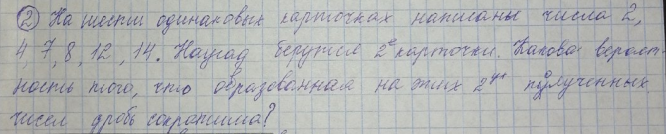 ② На шести одинаковых карточках написаны числа 2,
4 7, 8, 12, 14. Наугад берутся 2е карточки. Какова вероят-
ность того, что образованная из этих 2ух полученных
чисел дробь сократима?